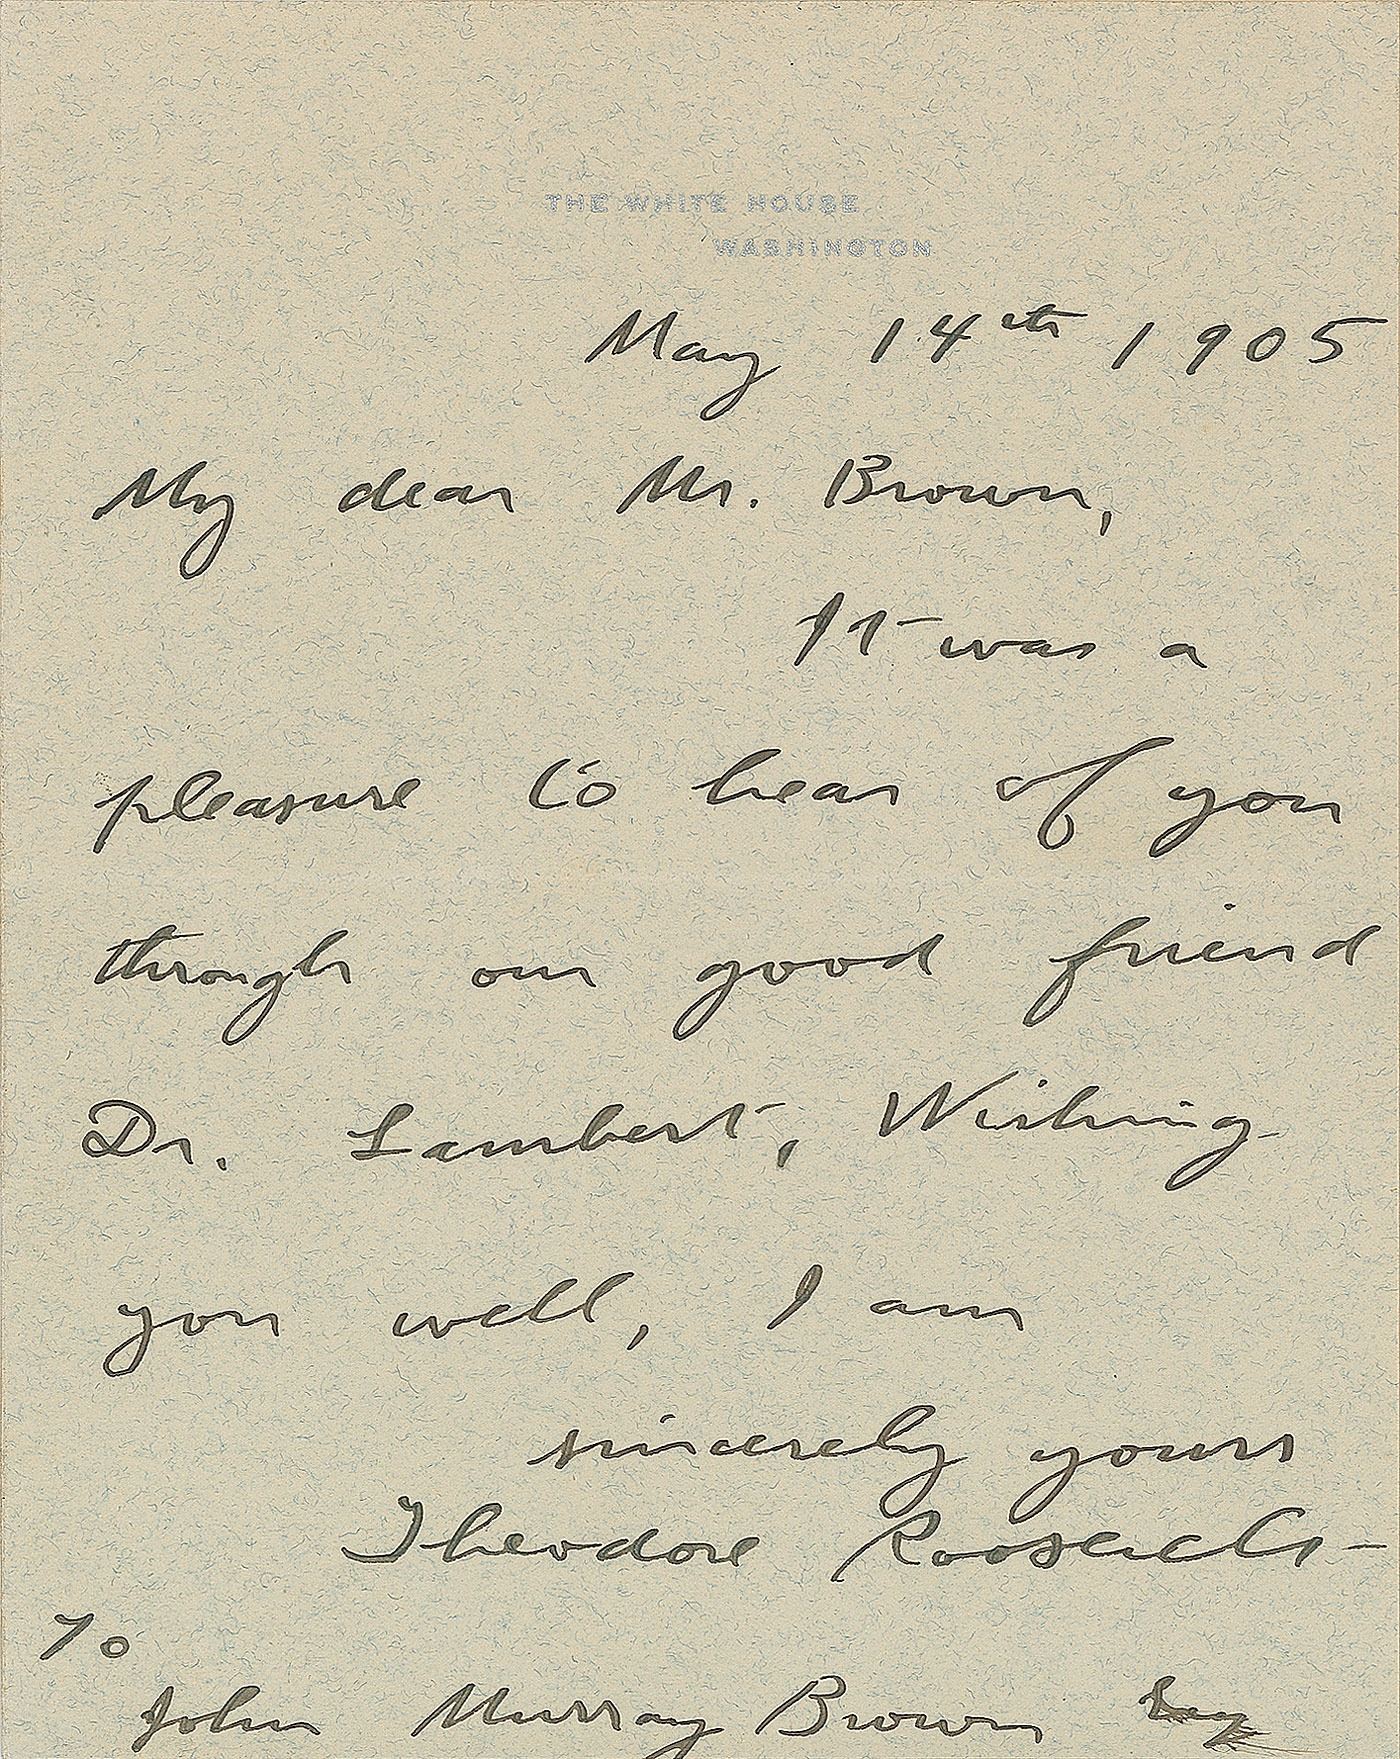 THE WHITE HOUSE
WASHINGTON
May 14th 1905
My dear Mr. Brown,
It was a
pleasure to hear of you
through our good friend
Dr. Lambert; Wishing
you well, I am
sincerely yours
Theodore Roosevelt
To
John Murray Brown